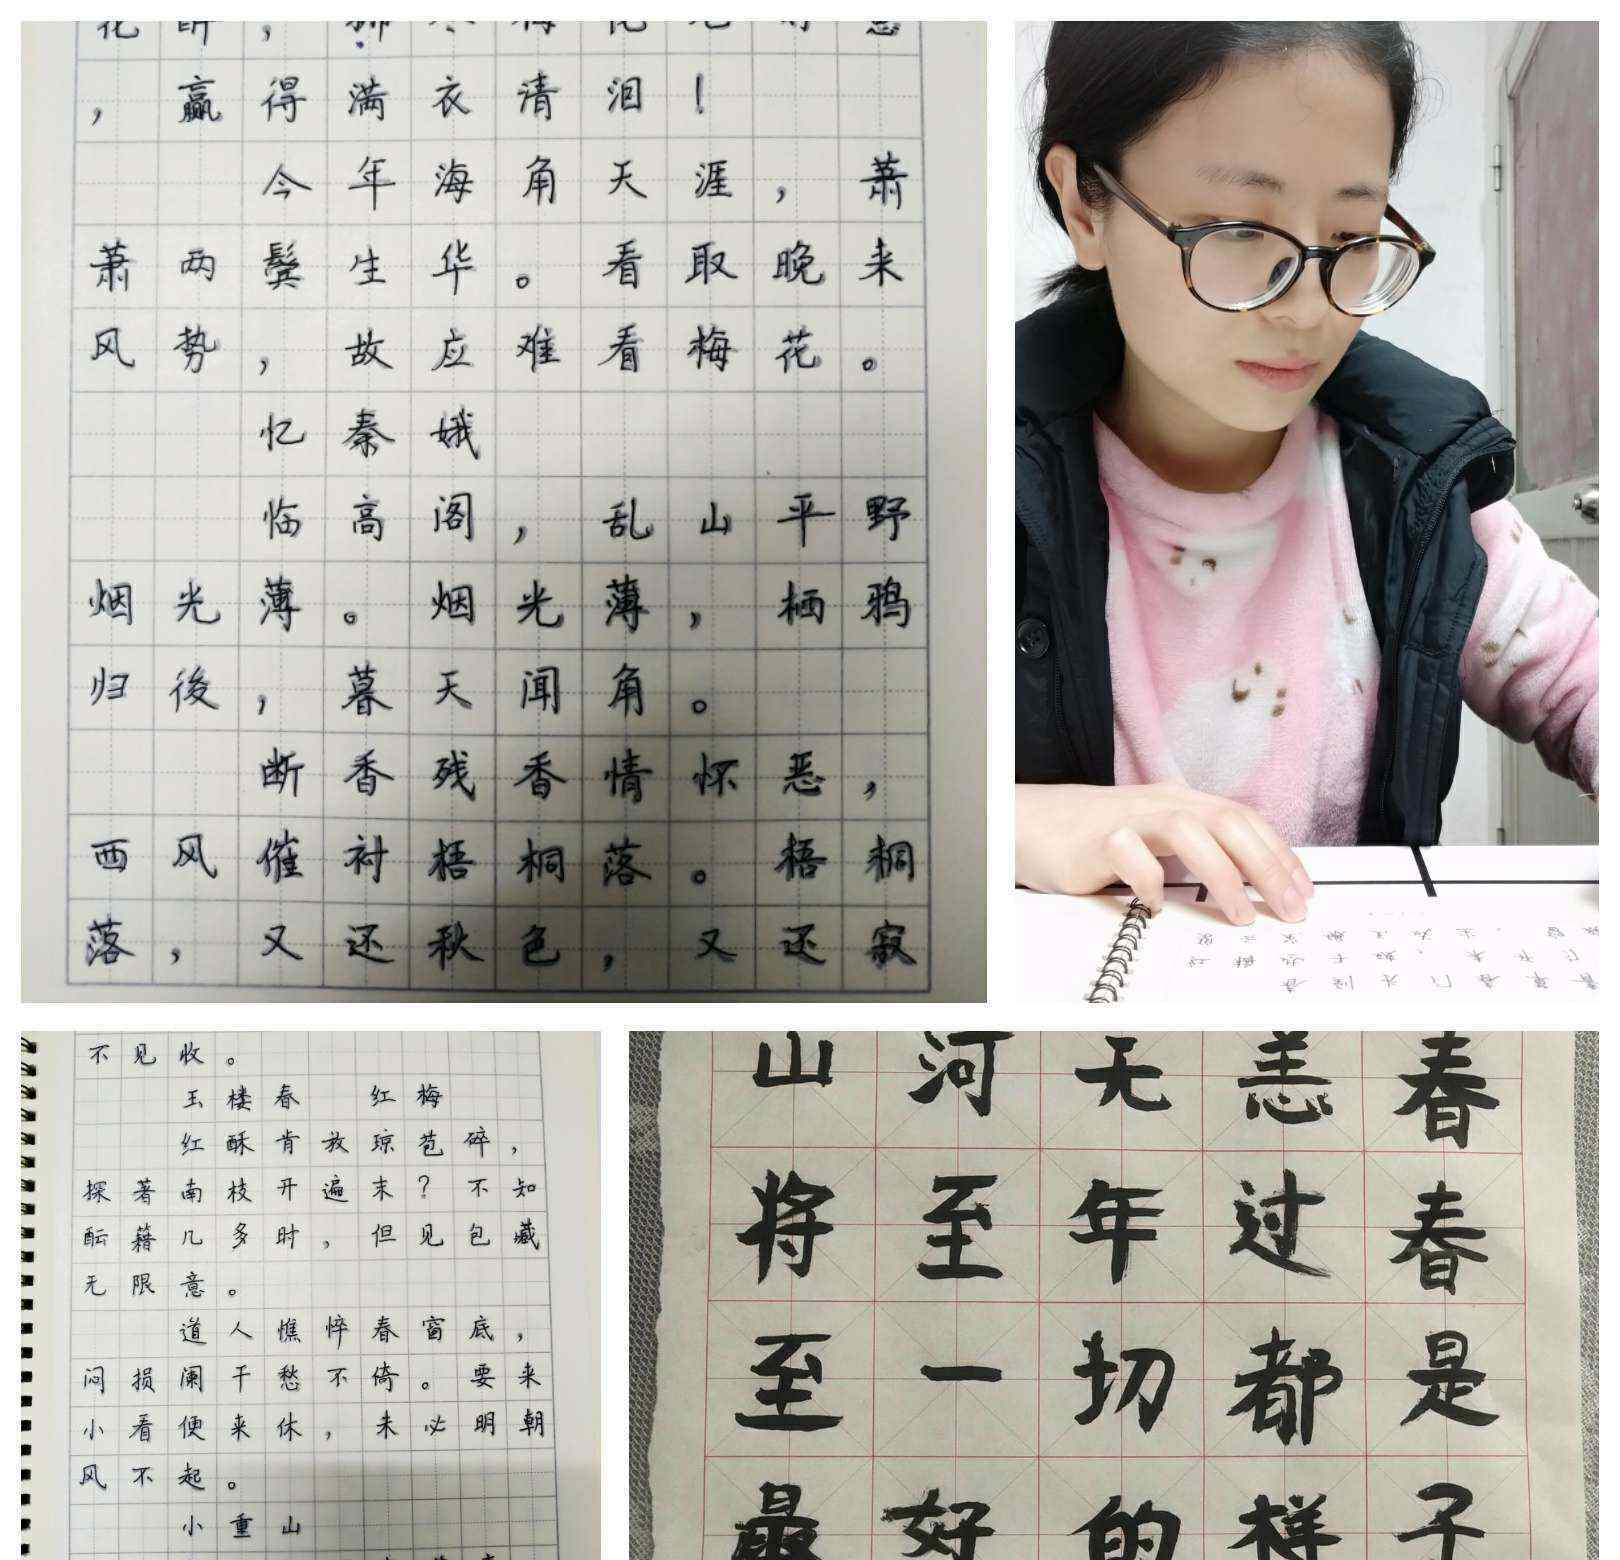 ，赢得满衣清泪！
今年海角天涯，萧
萧两鬓生华。看取晚来
风势，故应难看梅花。
忆秦娥
临高阁，乱山平野
烟光薄。烟光薄，栖鸦
归後，暮天闻角。
断香残香情怀恶，
西风催衬梧桐落。梧桐
落，又还秋色，又还寂
不见收。
玉楼春 红梅
红酥肯放琼苞碎，
探著南枝开遍末？不知
酝籍几多时，但见包藏
无限意。
道人憔悴春窗底，
闷损阑干愁不倚。要来
小看便来休，未必明朝
风不起。
小重山
山河无恙春
将至年过春
至一切都是
最好的样子